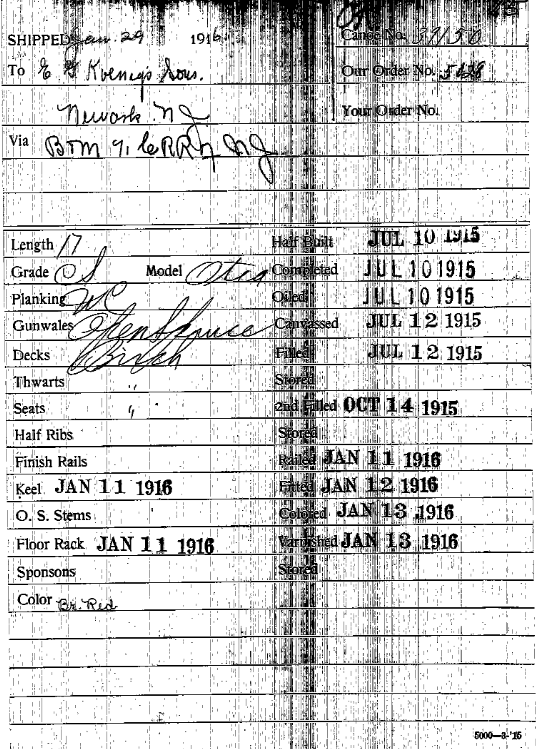 SHIPPED Jan. 29 1916 Canoe No. 37150
To E G Koenigs Sons. Our Order No.
Newark NJ Your Order No.
Via B+M NJ
Length 17 Half Built JUL 10 1915
Grade O S Model Otca Completed JUL 10 1915
Planking WC Oiled JUL 10 1915
Gunwales Open Spruce Canvassed JUL 12 1915
Decks Birch Filled JUL 12 1915
Thwarts " Stored
Seats " 2nd Filled OCT 14 1915
Half Ribs Stored
Finish Rails Railed JAN 11 1916
Keel JAN 11 1916 Fitted JAN 12 1916
O. S. Stems Colored JAN 13 1916
Floor Rack JAN 11 1916 Varnished JAN 13 1916
Sponsons Stored
Color Br. Red
5000—3-'15